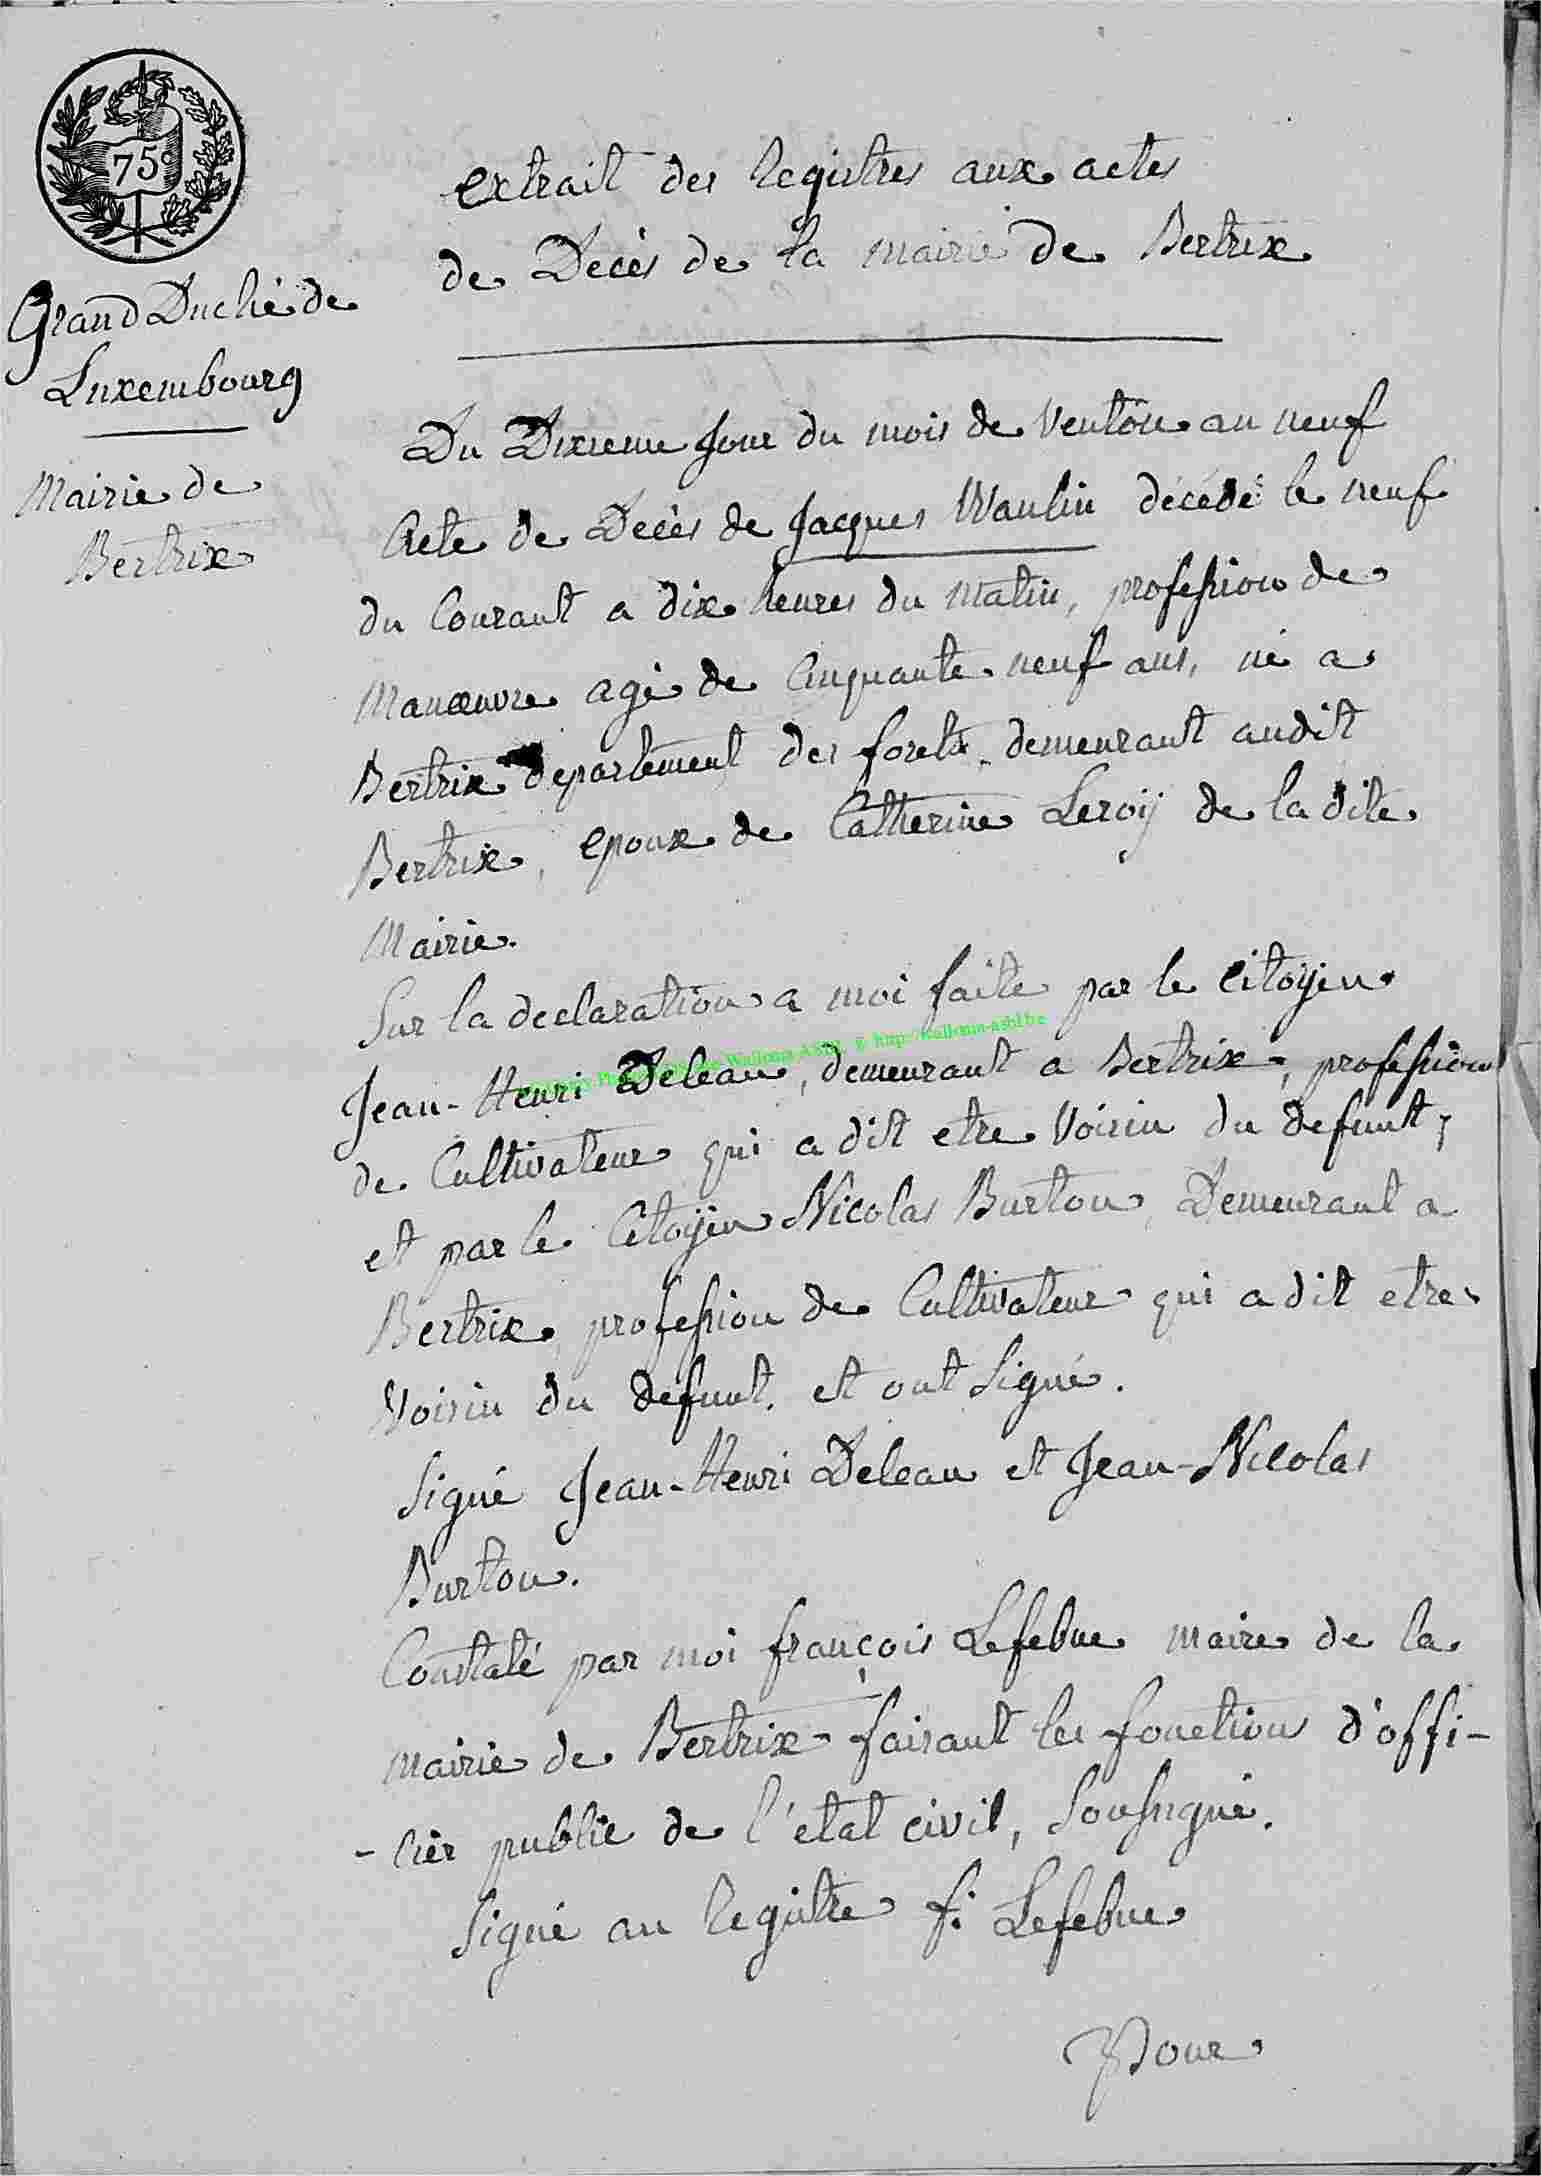 75c
Grand Duché de
Luxembourg
Mairie de
Bertrix
extrait des Registres aux actes
de Decès de la mairie de Bertrix
Du Dixieme Jour du mois de Ventôse an neuf
Acte de Decès de Jacques Waulin décédé le neuf
du Courant a dix heures du matin, profession de
Manœuvre agé de Cinquante neuf ans, né a
Bertrix departement des forets, demeurant audit
Bertrix, epoux de Catherine Leroÿ de la dite
Mairie.
Sur la declaration a moi faite par le Citoÿen
Jean-Henri Deleau, demeurant a Bertrix, profession
de Cultivateur qui a dit etre Voisin du defunt,
et par le Citoÿen Nicolas Burton, Demeurant a
Bertrix, profession de Cultivateur qui a dit etre
Voisin du defunt. et ont Signé.
Signé Jean-Henri Deleau et Jean-Nicolas
Burton.
Constaté par moi françois Lefebve maire de la
mairie de Bertrix faisant les fonction d'offi-
-cier public de l'etat civil, Soussigné.
Signé au Registre f: Lefebve
Pour